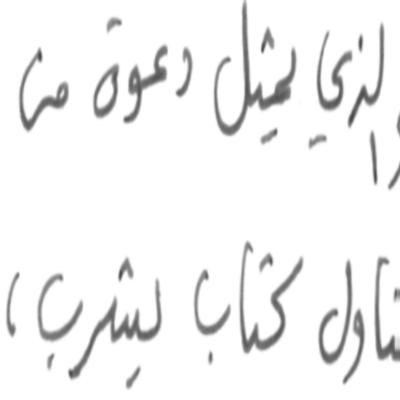 لذي يمثل دعوة من
تناول كتاب ليشرب ،